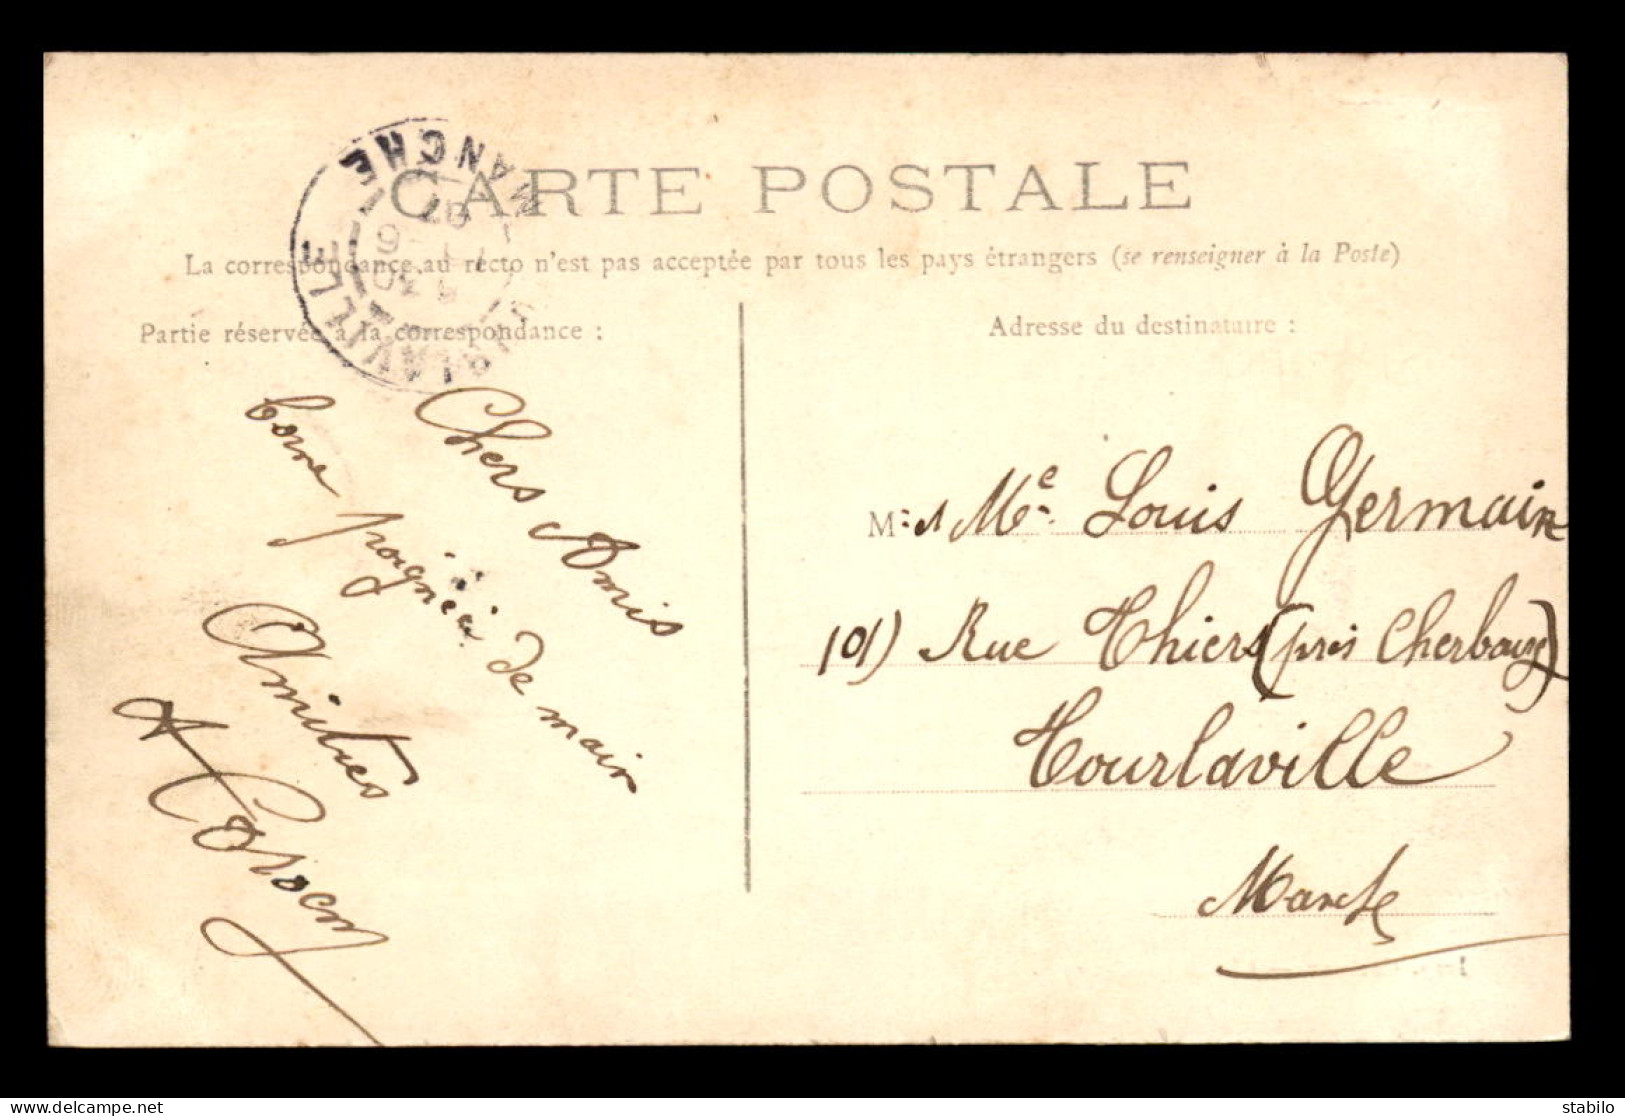 CARTE POSTALE
La correspondance au recto n'est pas acceptée par tous les pays étrangers (se renseigner à la Poste)
Partie réservée à la correspondance :
Adresse du destinataire :
TOURLAVILLE
MANCHE
07
Chers Amis
bonne poignée de main
Amitiés
M. et Me. Louis Germain
101) Rue Thiers (près Cherbourg)
Tourlaville
Manche
stabilo